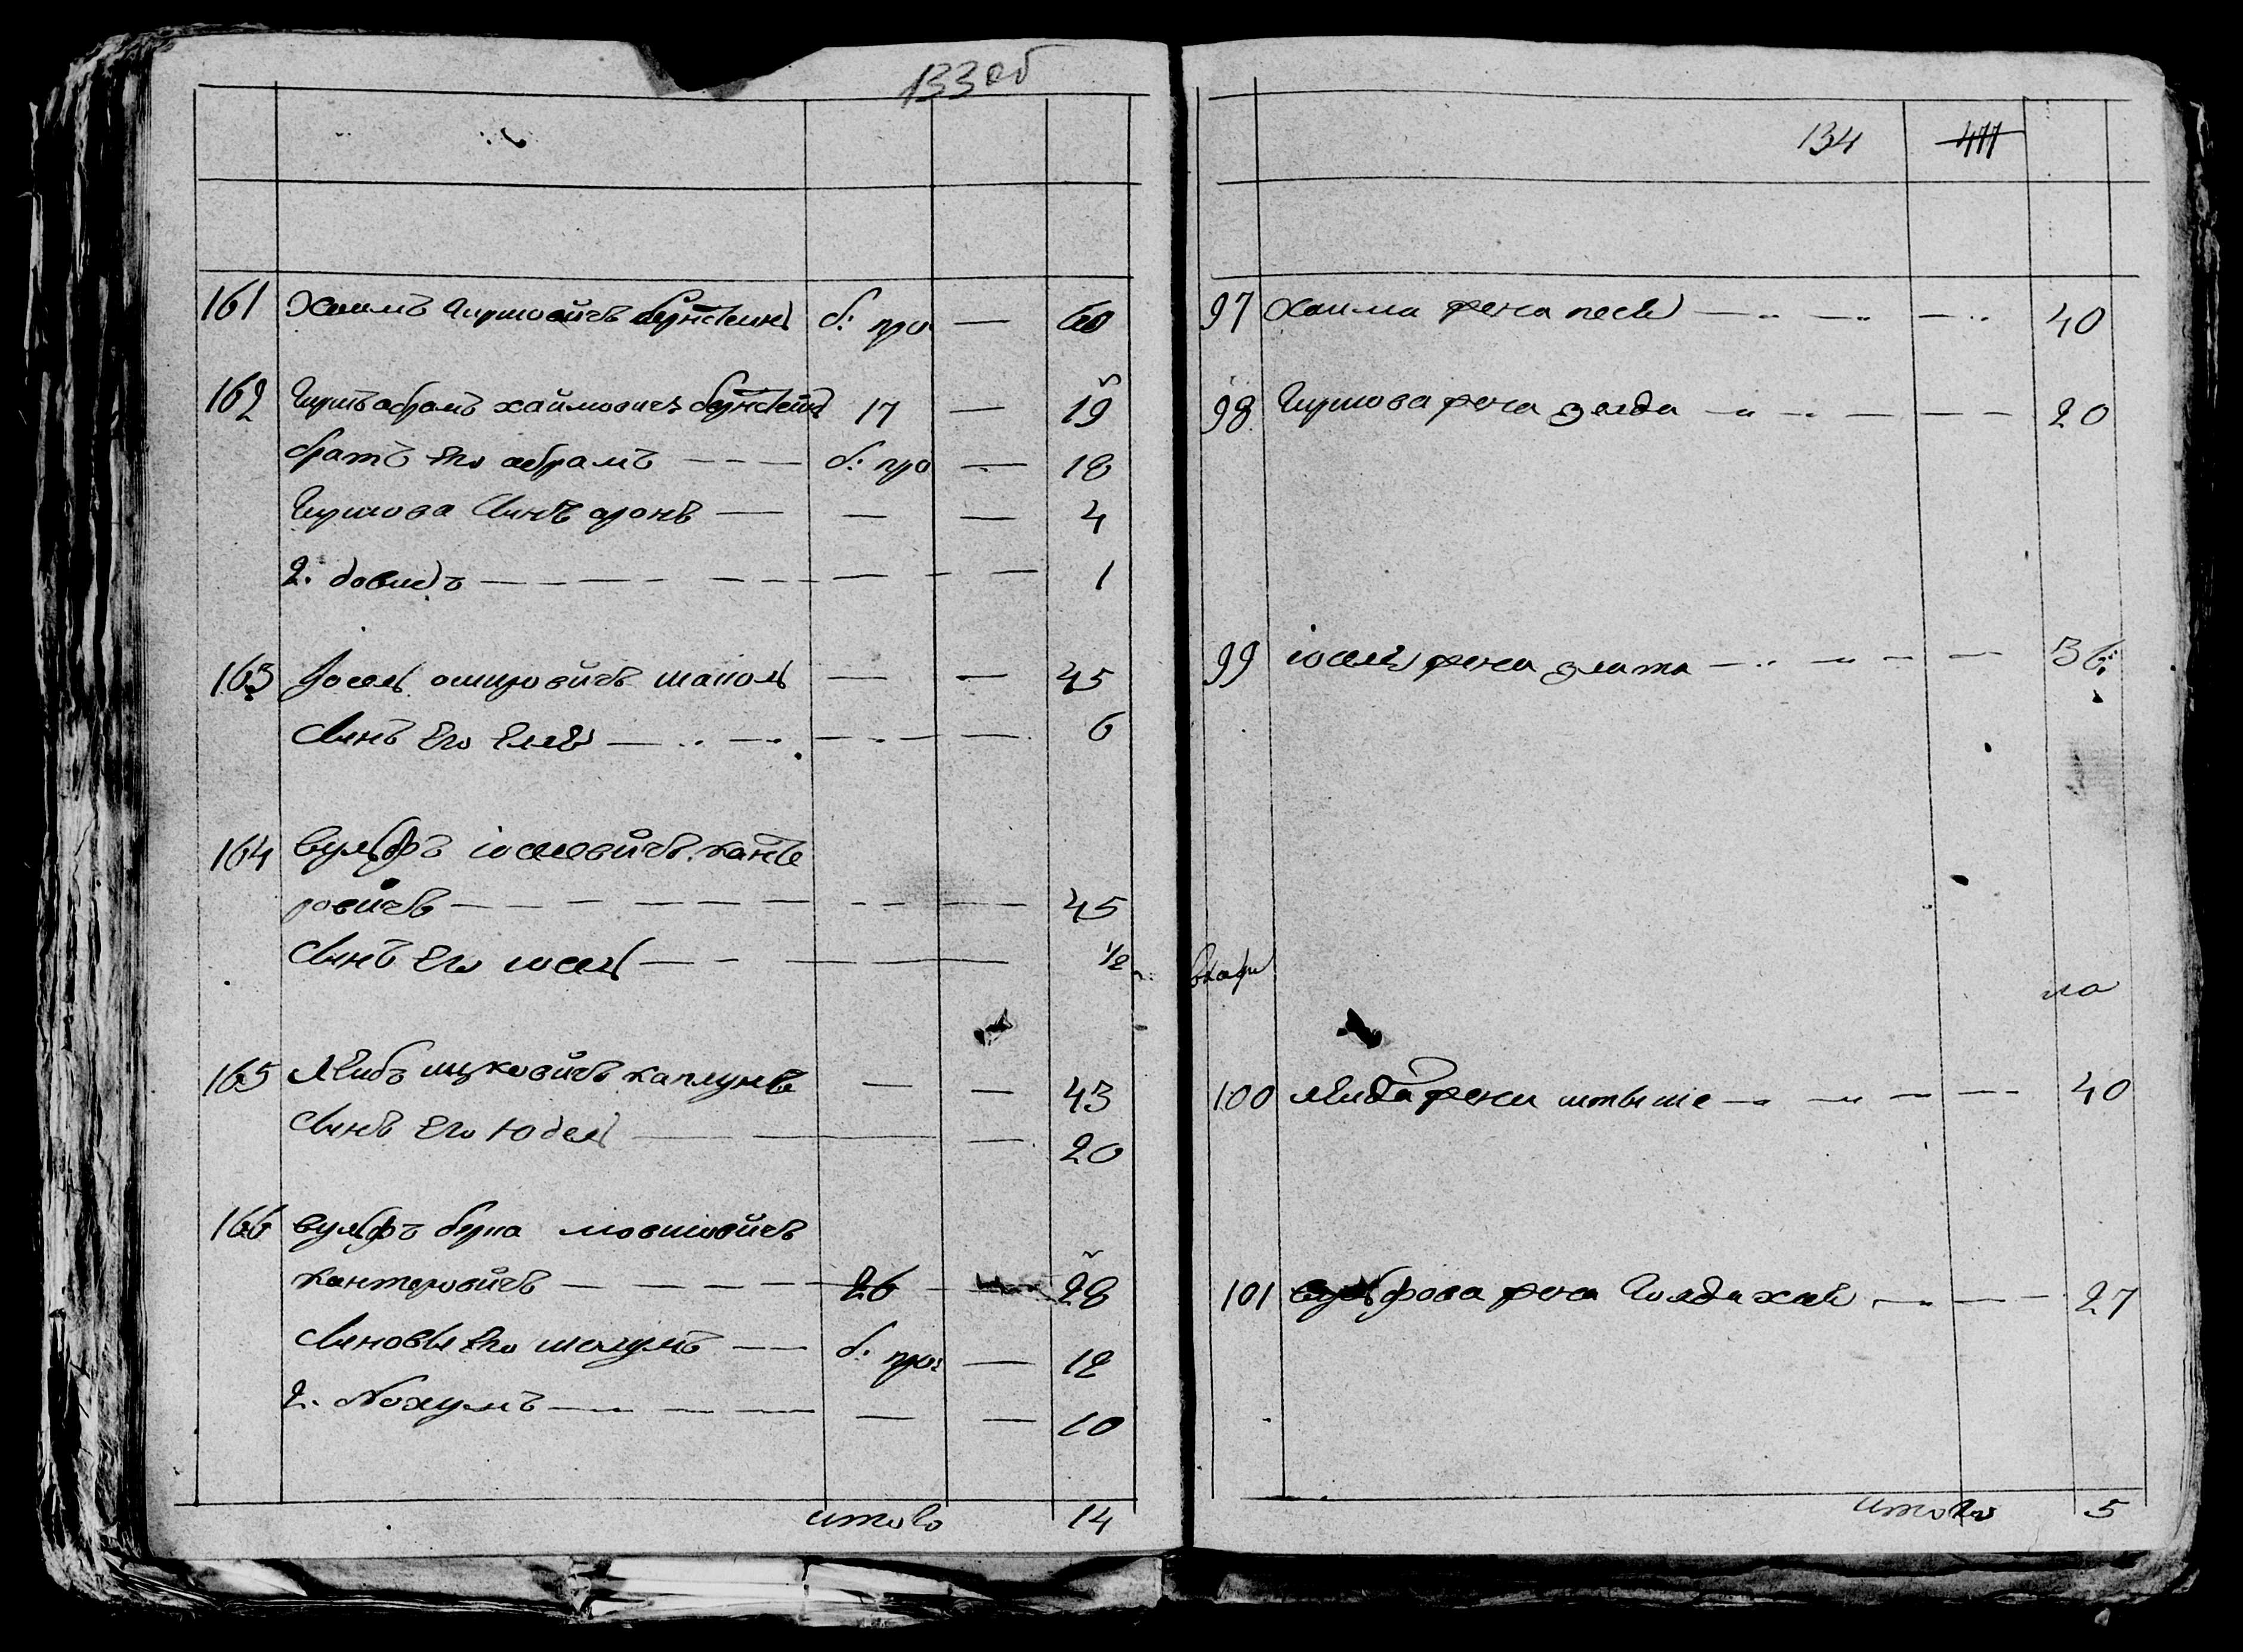 133 об
161 Хаимъ Гиршовичъ бернстеинъ б: про — 60
162 Гиршъ абрамъ хаймовичъ бернстейнъ 17 — 19
братъ Его абрамъ — б: про — 18
Гиршова Синъ аронъ — — — 4
2. довидъ — — — 1
163 Иосель ошировичъ шаполь — — 45
Синъ Его Елев — — — 6
164 Вульфъ иоселевичъ канте
ровичъ — — — 45
Синъ Его иосель — — — 1/2
165 Леибъ ицковичъ каплунъ — — 43
Синъ Его Юдель — — 20
166 вульфъ берка мовшовичъ
канторовичъ — 26 — 28
Синовы Его шолумъ — б: про: — 12
2. Нохумъ — — — 10
итого 14
134 411
97 Хаима жена песя — — — 40
98 Гиршова жена зелда — — — 20
99 иоселя жена злата — — — 36
100 Леиба жена — — — 40
101 вульфова жена Голда хая — — 27
итого 5